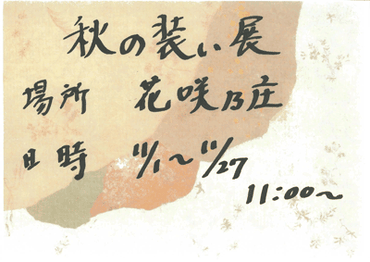 秋の装い展
場所 花咲乃庄
日時 11/1〜11/27
11:00〜